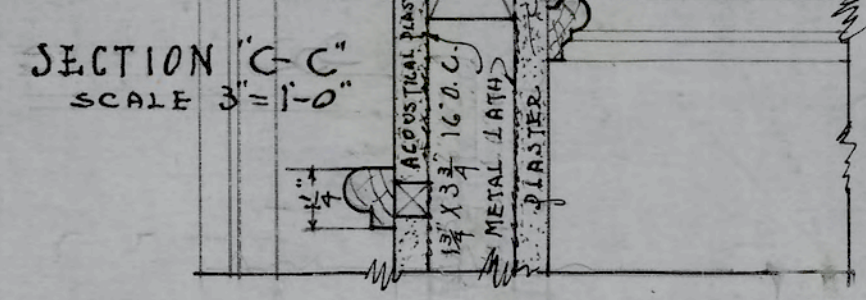 SECTION "C-C"
SCALE 3"=1'-0"
1¼"
ACOUSTICAL PLAS
1¾" X 3¾" 16" O.C.
METAL LATH
PLASTER